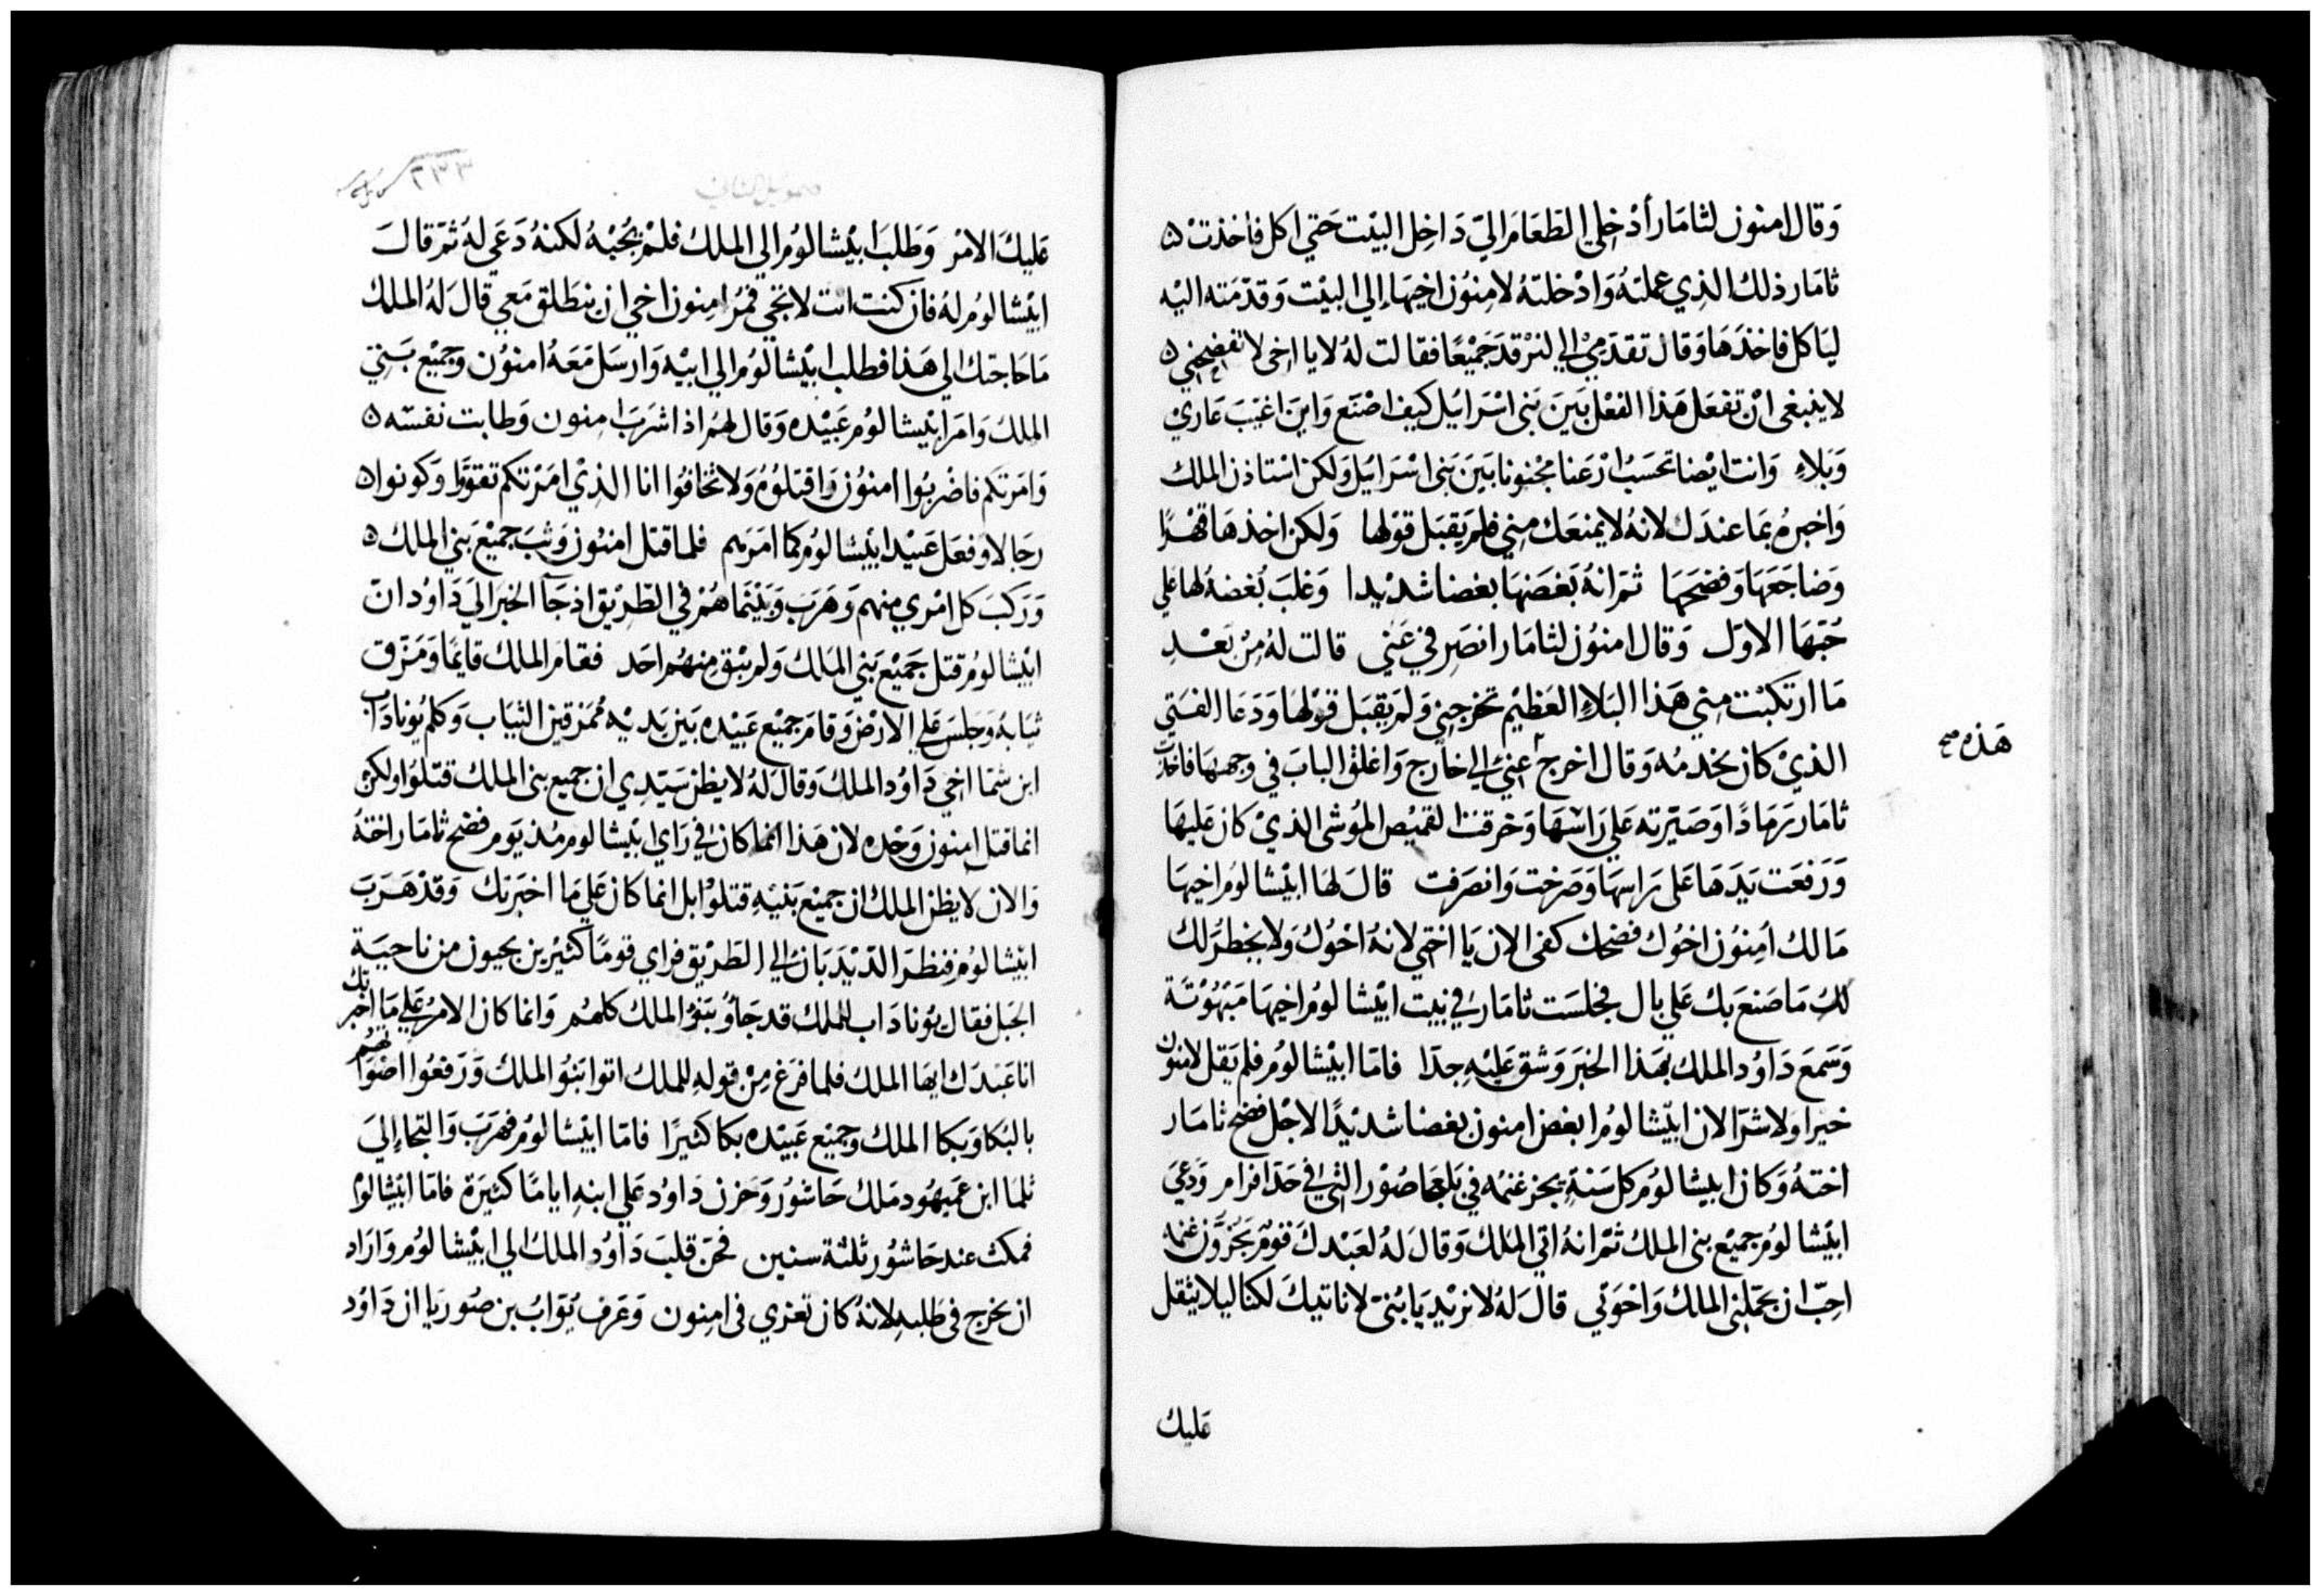 وَقال امنون لثامَار أدْخِلي الطّعَامَ اليّ دَاخِل البيْت حَتي اكل فأخذتْ
ثامَار ذلك الذِي عملتهُ وَادْخلتهُ لامِنوُن اخِيهَا إلي البيْت وَقدّمَته اليْه
ليَاكل فاخذَهَا وَقال تقدّمِيْ الي لنرْقدَ جَميْعًا فقالت لهُ لا يا اخى لا تفضِحْني
لا ينبغى انْ تفعَل هَذا الفعْل بَينَ بَنى اسْرَائيل كيف اصْنَع وَاينَ اغيّبَ عَاريْ
وَبَلاءِ وَانت ايْضا تحسَبُ ارْعَنا مجْنونا بَينَ بَنى اسْرَائيل وَلكن اسْتاذن الملك
وَاخبرهُ بمَا عندَك لانهُ لا يمنعَك مِني فلم يَقبَل قوْلها وَلكن اخذهَا قهْرًا
وَضاجَعَهَا وَفضحَهَا ثمّ انهُ بَغضَهَا بغضا شدْيدا وَغلبَ بُغضهُ لها علي
حُبّهَا الاوّل وَقال امنوُن لثامَار انصَرِفي عَني قالت لهُ مِنْ بَعْدِ
مَا ارتكبْت مِني هَذا البَلاءِ العَظيْم تخرجني وَلم يَقبَل قوْلهَا وَدَعَا الفتَي
الذيْ كان يخدمُه وَقال اخرج عنِي الي خارج وَاغلق البابَ في وَجههَا فاخذت
هَذه صح
ثامَار رَمَادًا وَصَيّرته عَلي رَاسْهَا وَخرقت القميْص المُوَشى الذيْ كان عَليهَا
وَرَفعَت يَدَهَا عَلى رَاسهَا وَصَرَخت وَانصَرَفت قالَ لهَا ابيْشالوُم اخيهَا
مَالك أمِنوُن اخوُك فضحك كفى الان يَا اختي لانهُ اخوُك وَلا يخطرُ لك
لكِ مَا صَنعَ بك عَلي بال فجلسَت ثامَار في بيت ابيْشالومُ اخيهَا مَبْهُوْتة
وَسَمعَ دَاوُد الملك بهَذا الخبَر وَشق عَليْه جدّا فامّا ابيْشالوُم فلم يَقل لامنون
خيرا وَلا شرّا لان ابيْشالومُ ابغض امنون بغضا شديْدًا لاجْل فضح ثامَار
اختهُ وَكان ابيشالومُ كل سَنةٍ يجز غنمُه في بَلعَاصُوْر التي في حَدّ افرام وَدعيَ
ابيْشالومُ جميْع بنى الملك ثمّ انهُ اتي المَلك وَقالَ لهُ لعَبْدكَ قومٌ يَجُزُّون غنمه
احِبّ ان يحمّلني الملك وَاخوَتي قالَ لهُ لا نريْد يَا بُنيّ لا ناتيكَ لكنا ليلا يثقل
عَليك
صموئيل الثاني
٢٢٣
عَليكَ الامْر وَطَلبَ ابيْشالوُم الي الملك فلمْ يجُبْهُ لكنهُ دَعَي لهُ ثمّ قالَ
ابيْشالومُ لهُ فان كنت انت لا تجي فمُر امِنون اخي ان ينطَلق مَعي قالَ لهُ الملك
مَا حَاجتك الي هَذا فطلب ابيْشالوم الي ابيْه وَارسَل مَعَهُ امنوُن وَجميْع بَني
الملك وَامَر ابيْشالومُ عَبيْده وَقال لهمُ اذا شرَبَ امِنون وَطابت نفسَه
وَامَرتكم فاضْربُوا امنوُن وَاقتلوُه وَلا تخافوُا انا الذيْ امَرْتكم تقوّوا وَكونوا
رجَالا وفعَل عَبيْد ابيْشالومُ كما امَرَهم فلما قتل امنوُن وَثبَ جميْع بَني الملك
وَرَكبَ كل امْري منهم وَهَرَبَ وَبيْنمَا هُمْ في الطّريْق اذ جَآ الخبَر اليَ دَاوُد انّ
ابيْشالومُ قتل جَميْع بَني المَلك وَلم يبْق مِنهُم احَد فقامَ الملك قايمًا وَمَزّق
ثيَابهُ وَجلسَ عَلي الارْض وَقامَ جميْع عَبيْده بَين يدَيْه مُمَزقين الثيَاب وَكلم يُونادَاب
ابن شمّا اخي دَاوُد الملك وَقالَ لهُ لا يظن سَيّدِي ان جميع بنى الملك قتلوُا ولكن
انما قتل امنون وَحْده لان هَذا انما كان في رَاي ابيْشالوم مُذ يَومَ فضح ثامَار اختهُ
وَالان لا يظن الملك ان جميْع بَنيْه قتلوْا بل انما كان عَلي مَا اخبَرتك وَقدْ هَرَبَ
ابيْشالومُ فنظرَ الدّيْدَبَان الي الطَريْق فراي قومًا كثيرين يجيون من ناحيَة
الجبَل فقال يوُنادَاب للملك قد جَاوُ بَنوُ الملك كلهُم وَانما كان الامْر عَلي مَا اخبرتك
انا عَبْدَك ايهَا الملك فلما فرَغ مِنْ قولهِ للملك اتوا بَنوُ الملك وَرَفعُوا اصْوَاتهُم
بالبُكا وَبَكا الملك وَجميْع عَبيْده بكا كثيرًا فامّا ابيْشالومُ فهَرَبَ وَالتجاء إليَ
ثلمَا ابن عَميهُود مَلك حَاشوُر وَحَزن دَاودُ عَلي ابنهِ ايامًا كثيَرة فامّا ابيْشالوُم
فمكث عند حَاشوُر ثلثة سنين فحَنّ قلبَ دَاوُد الملك الي ابيْشالومُ وَارَاد
ان يخرج في طَلبهِ لانهُ كان تعزي فى امِنون وَعَرف يُوَابُ بن صُوريَا ان دَاوُد